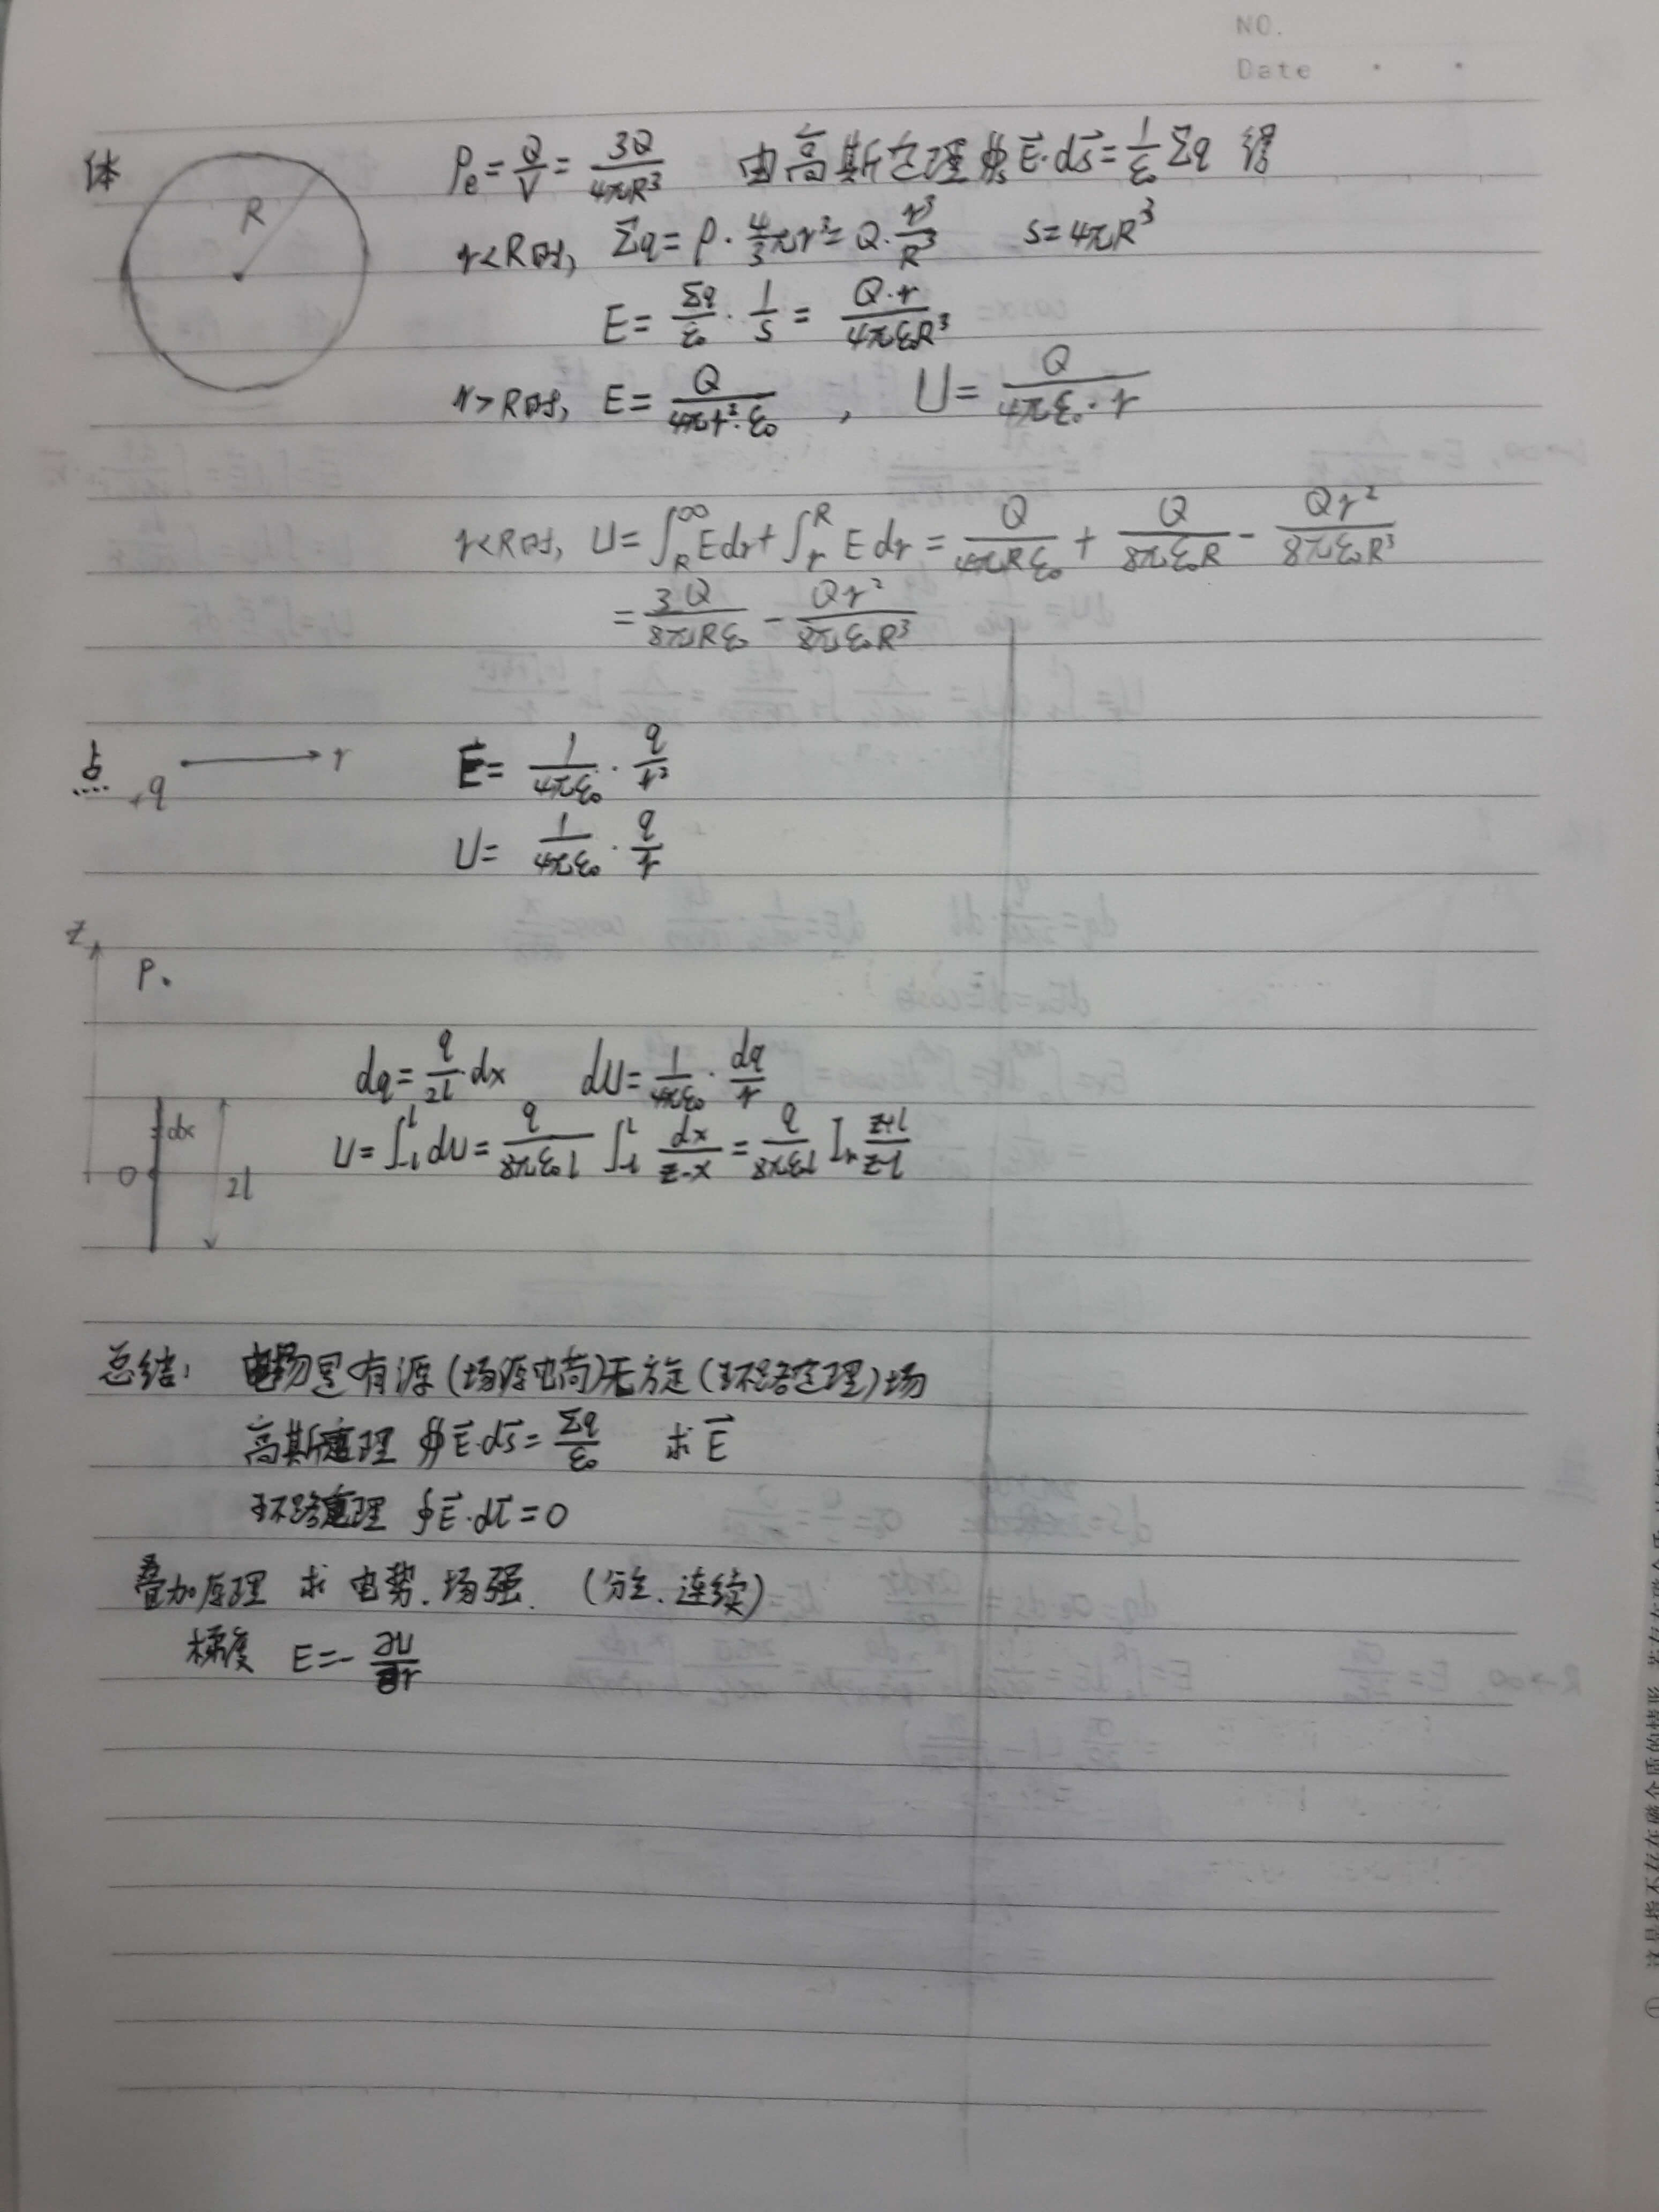 NO.
Date
体 R ρe = Q/V = 3Q/4πR³ 由高斯定理 ∯s E⃗·ds⃗ = 1/ε₀ Σq 得
r<R时, Σq = ρ · 4/3 πr³ = Q · r³/R³ S = 4πR³
E = Σq/ε₀ · 1/S = Q·r/4πε₀R³
r>R时, E = Q/4πr²·ε₀ , U = Q/4πε₀·r
r<R时, U = ∫_R^∞ Edr + ∫_r^R E dr = Q/4πRε₀ + Q/8πε₀R − Qr²/8πε₀R³
= 3Q/8πRε₀ − Qr²/8πε₀R³
点 +q r E = 1/4πε₀ · q/r²
U = 1/4πε₀ · q/r
z
P.
dq = q/2l · dx dU = 1/4πε₀ · dq/r
dx U = ∫_-l^l dU = q/8πε₀l ∫_-l^l dx/z-x = q/8πε₀l ln z+l/z-l
O 2l
总结: 电场是有源(场源电荷)无旋(环路定理)场
高斯定理 ∯E⃗·ds⃗ = Σq/ε₀ 求E⃗
环路定理 ∮E⃗·dl⃗ = 0
叠加原理 求 电势.场强. (分立.连续)
梯度 E = −∂U/∂r